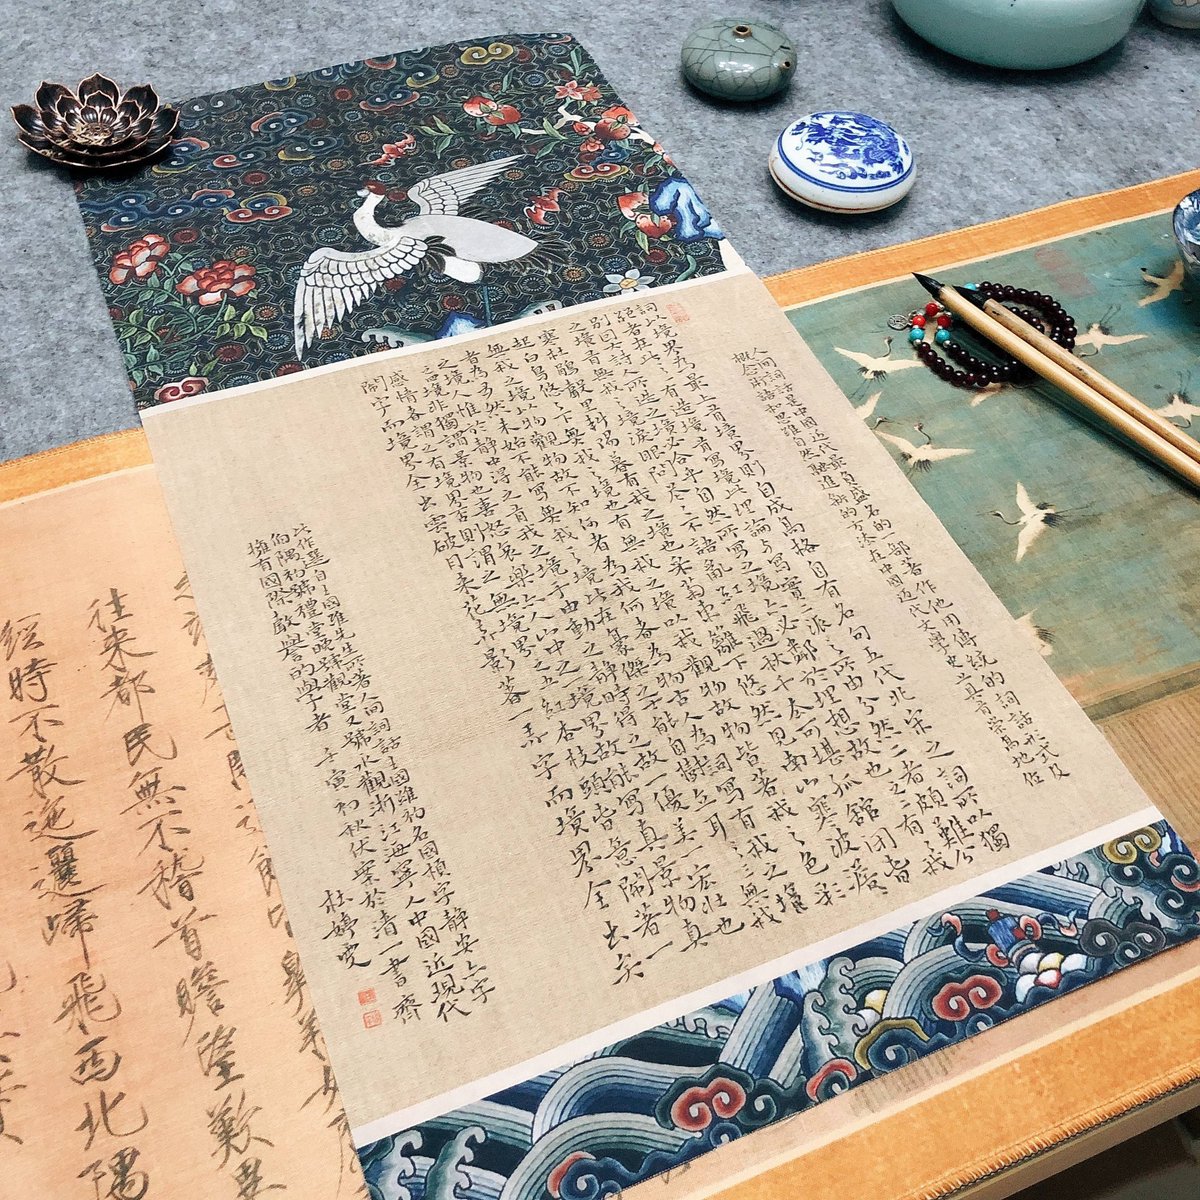 人間詞話是中國近代最負盛名的一部著作他用傳統的詞話形式及
概念術語和思維自然融進新的方法在中國近代文學史上具有崇高地位
詞以境界為最上有境界則自成高格自有名句五代北宋之詞所以獨
絕者在此有造境有寫境此理論与寫實二派之所由分然二者頗難分
別因大詩人所造之境必合乎自然所寫之境亦必鄰於理想故也有有我
之境有無我之境淚眼問花花不語亂紅飛過秋千去可堪孤館閉春
寒杜鵑聲里斜陽暮有我之境也采菊東籬下悠然見南山寒波澹澹
起白鳥悠悠下無我之境也有我之境以我觀物故物皆著我之色彩
無我之境以物觀物故不知何者為我何者為物古人為詞寫有我之境
者為多然未始不能寫無我之境此在豪傑之士能自樹立耳無我
之境人惟於靜中得之有我之境於由動之靜時得之故一優美一宏壯也
境非獨謂景物也喜怒哀樂亦人心中之一境界故能寫真景物真
感情者謂之有境界否則謂之無境界紅杏枝頭春意鬧著一
鬧字而境界全出雲破月來花弄影著一弄字而境界全出矣
此作選自王國維先生所著人間詞話王國維初名國楨字靜安亦字
伯隅初號禮堂晚號觀堂又號永觀浙江海寧人中國近現代
擁有國際聲譽的學者 壬寅初秋伏案於清一書齋
杜婷雯
往來都民無不稽首瞻望歎異
經時不散迤邐歸飛西北隅